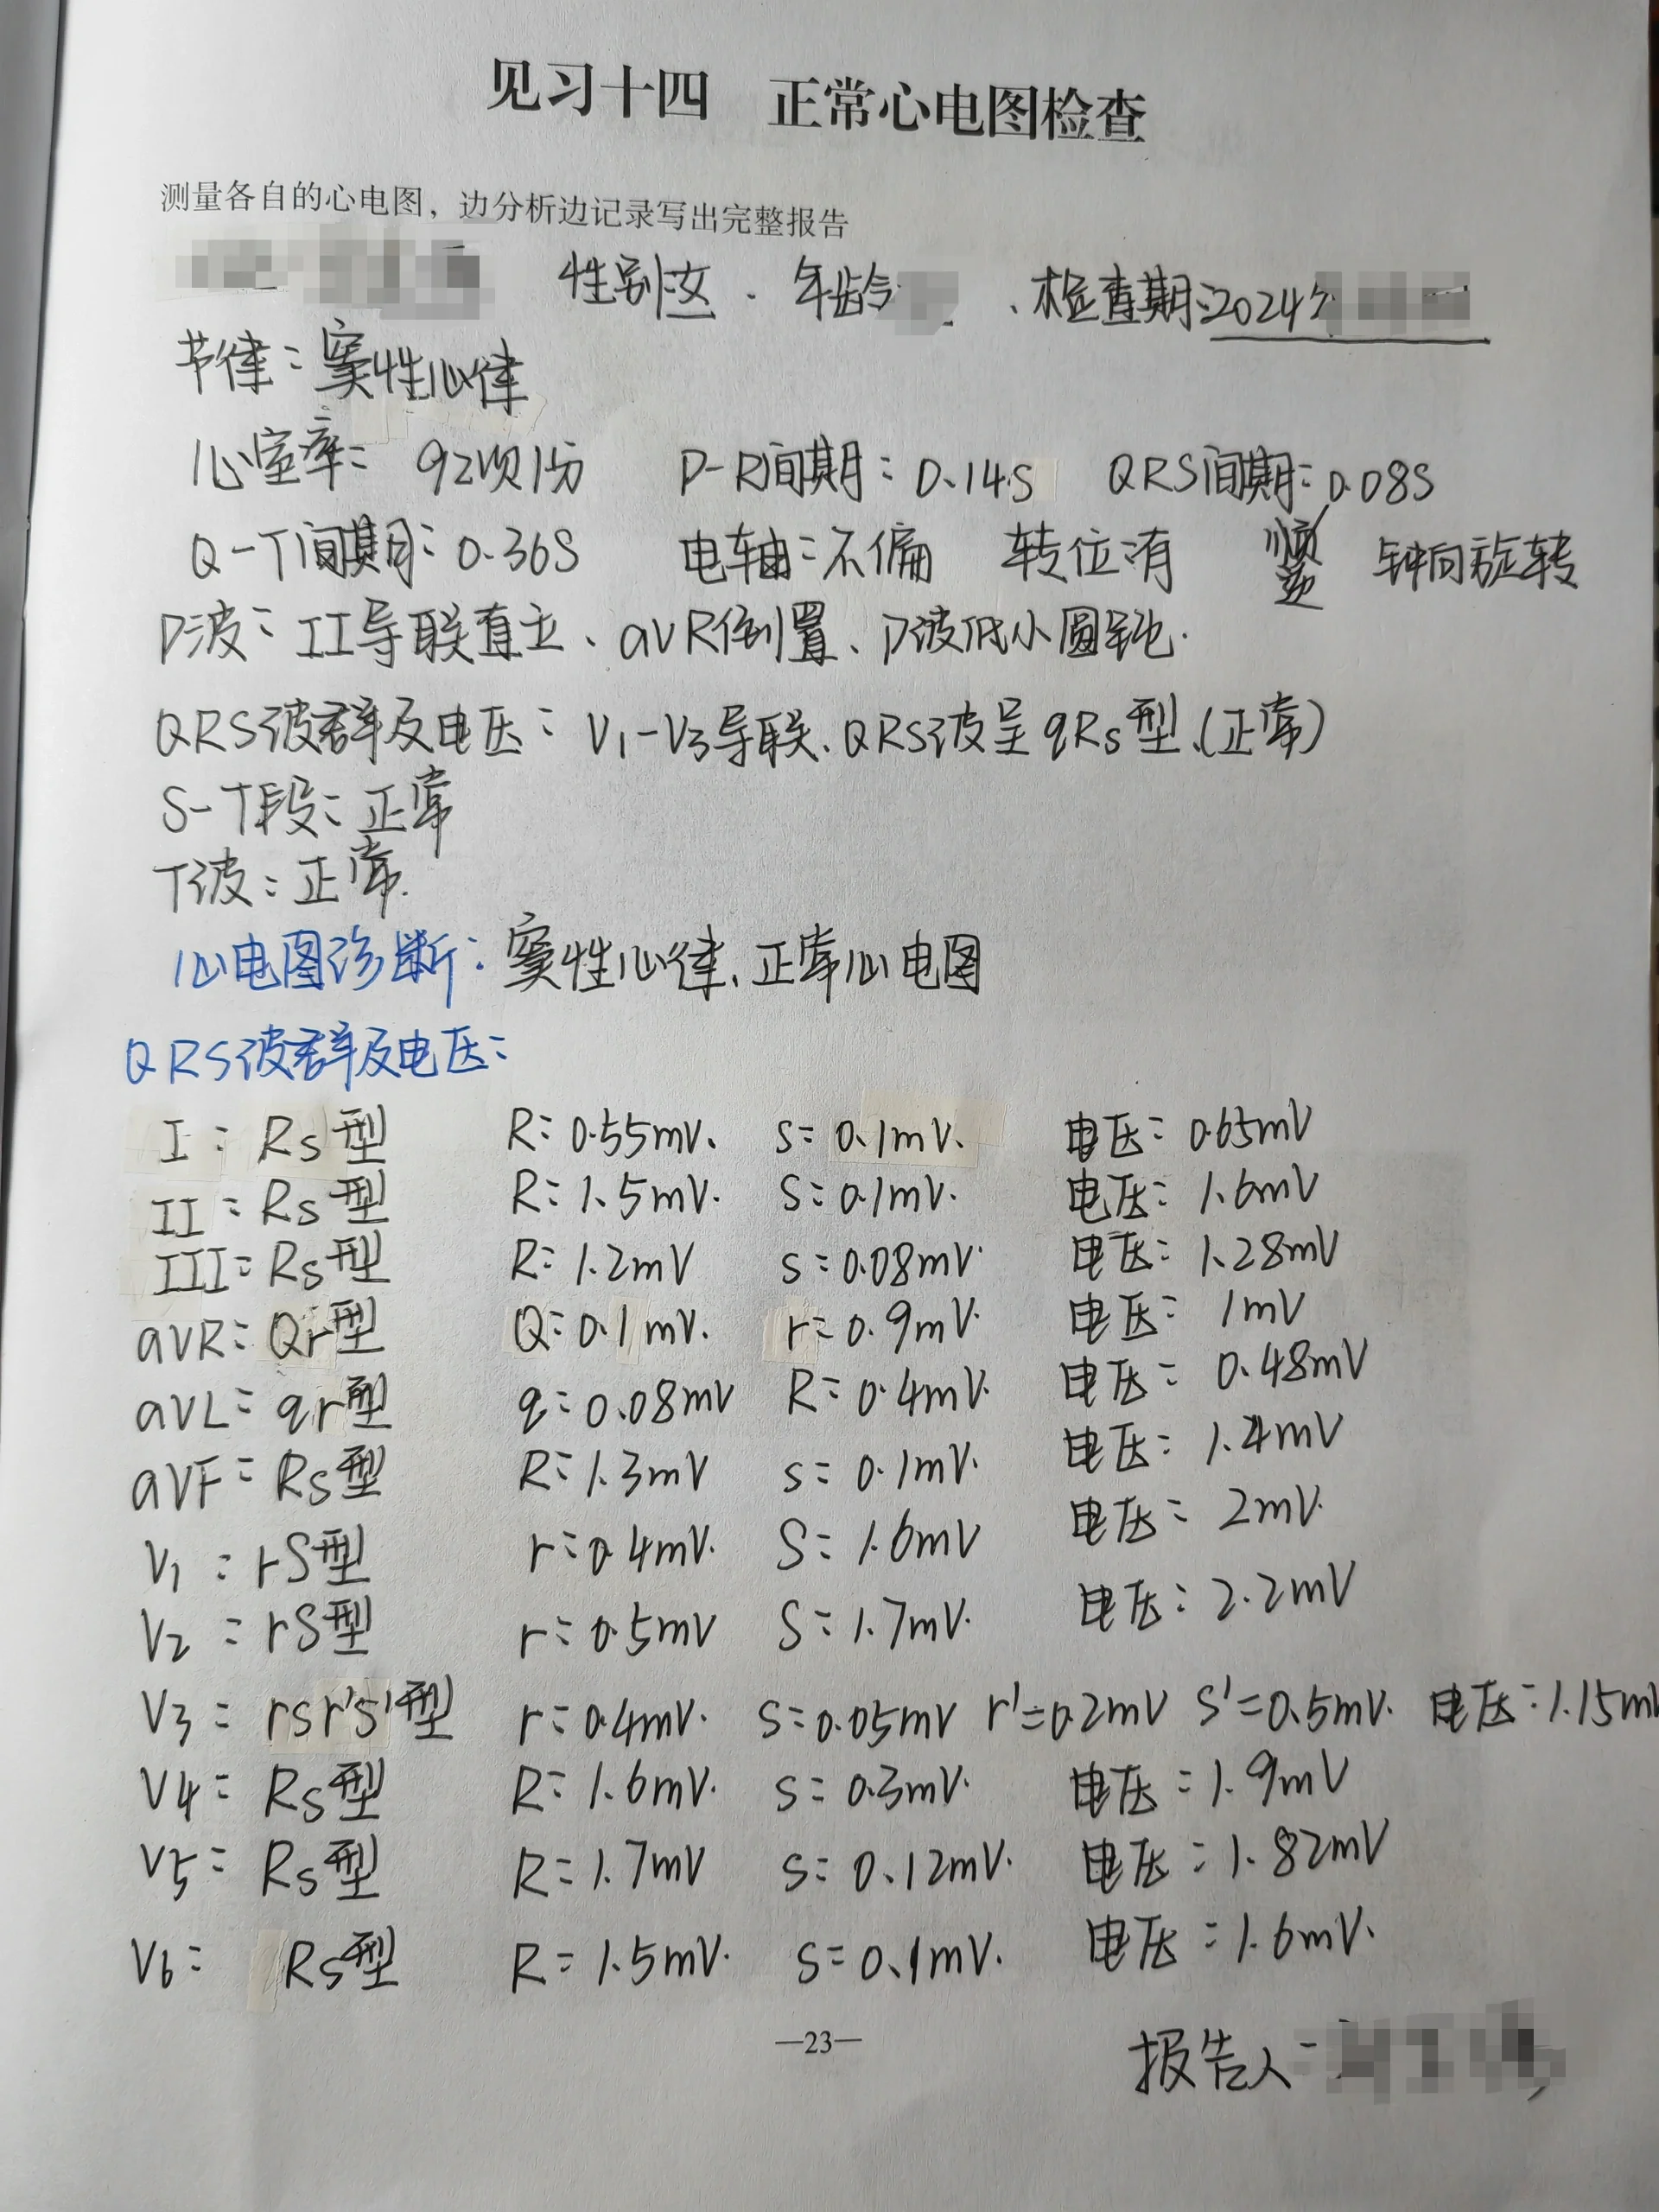 见习十四 正常心电图检查
测量各自的心电图，边分析边记录写出完整报告
性别:女. 年龄 、检查期:2024年
节律:窦性心律
心室率: 92次/分 P-R间期:0.14S QRS间期:0.08S
Q-T间期:0.36S 电轴:不偏 转位:有 顺/逆 钟向旋转
P波:II导联直立、aVR倒置、P波低小圆钝.
QRS波群及电压:V1-V3导联.QRS波呈qRs型.(正常)
S-T段:正常
T波:正常.
心电图诊断:窦性心律、正常心电图
QRS波群及电压:
I:Rs型 R:0.55mV. s:0.1mV. 电压:0.65mV
II:Rs型 R:1.5mV. S:0.1mV. 电压:1.6mV
III:Rs型 R:1.2mV s:0.08mV. 电压:1.28mV
aVR:Qr型 Q:0.1mV. r=0.9mV. 电压:1mV
aVL:qr型 q:0.08mV R:0.4mV. 电压:0.48mV
aVF:Rs型 R:1.3mV s:0.1mV. 电压:1.4mV
V1:rS型 r:0.4mV. S:1.6mV 电压:2mV.
V2:rS型 r:0.5mV S:1.7mV. 电压:2.2mV
V3:rsr's'型 r:0.4mV. s:0.05mV r'=0.2mV s'=0.5mV. 电压:1.15mV
V4:Rs型 R:1.6mV. s:0.3mV. 电压:1.9mV
V5:Rs型 R:1.7mV s:0.12mV. 电压:1.82mV
V6: Rs型 R=1.5mV. s=0.1mV. 电压:1.6mV.
—23—
报告人: